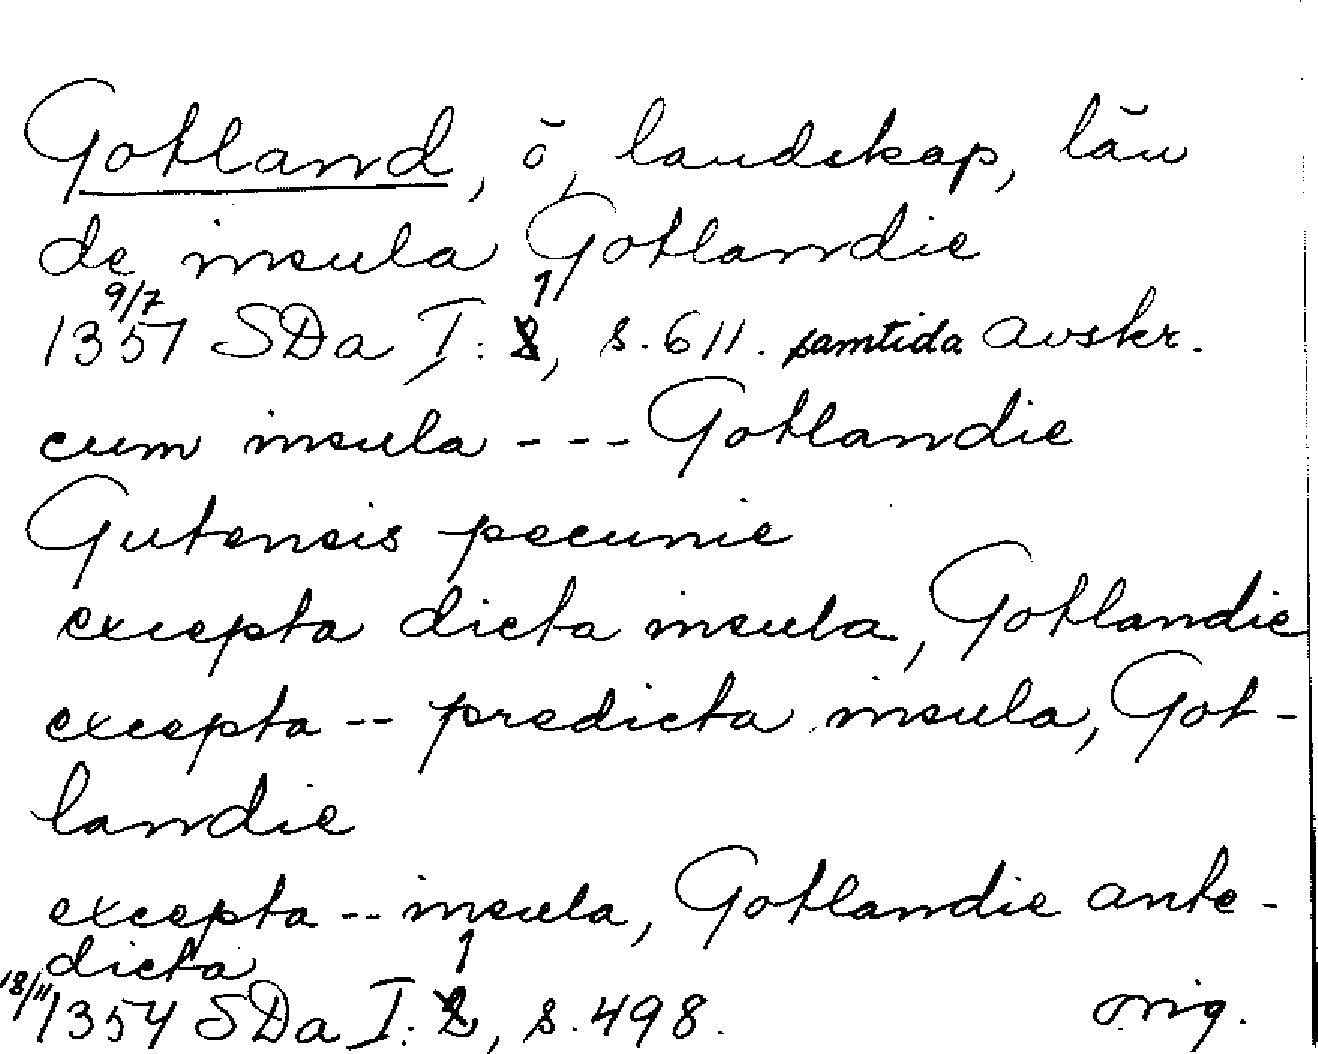 Gotland, ö, landskap, län
de insula Gotlandie
9/7 1357 SDa I: 1, s. 611. samtida avskr.
cum insula --- Gotlandie
Gutensis pecunie
excepta dicta insula, Gotlandie
excepta -- predicta insula, Got-
landie
excepta -- insula, Gotlandie ante-
dicta
18/11 1354 SDa I: 1, s. 498. orig.